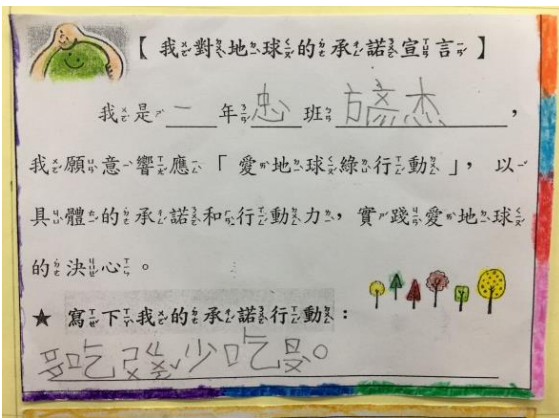 【我對地球的承諾宣言】
我是一年忠班 杰，
我願意響應「愛地球綠行動」，以
具體的承諾和行動力，實踐愛地球
的決心。
★ 寫下我的承諾行動：
吃 少吃 。